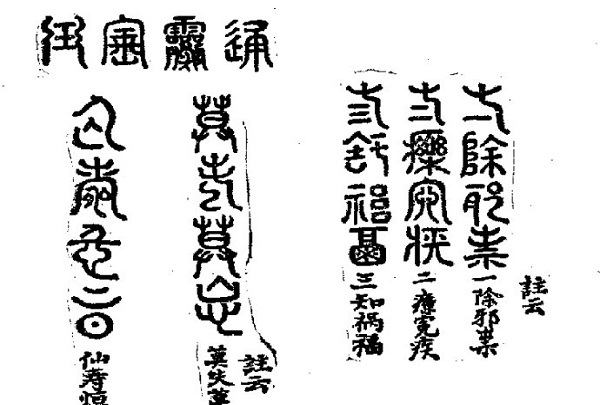 註云
一除邪祟一除邪祟
二療冤疾二療冤疾
三知禍福三知祸福
通靈寶玉
註云
莫失莫忘莫失莫
仙壽恆昌仙寿恒